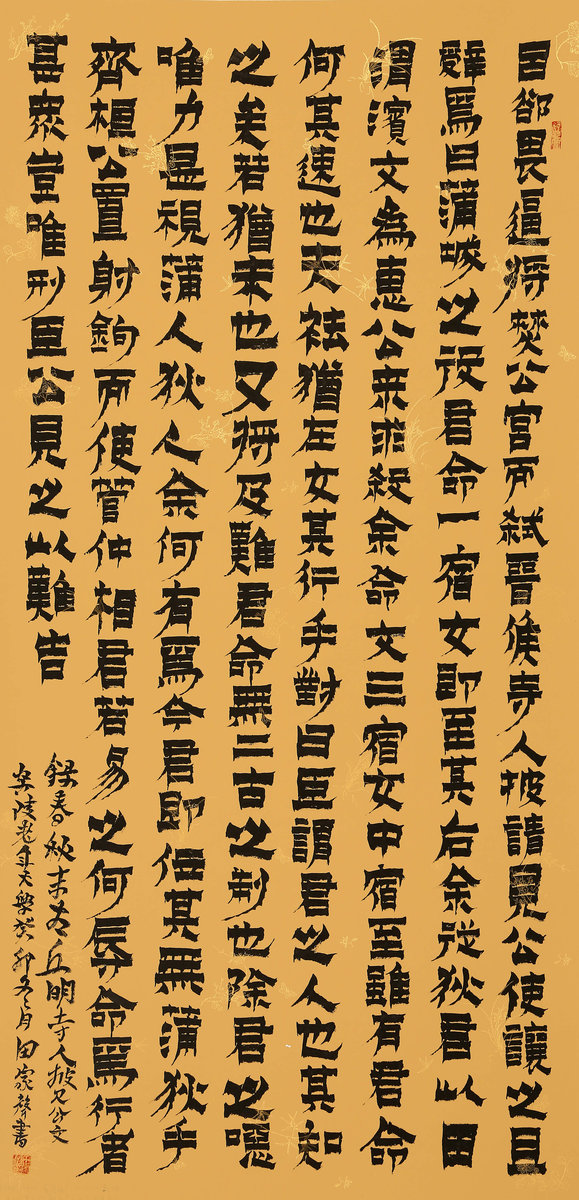 吕郤畏逼将焚公宫而弑晉侯寺人披請見公使讓之且
辭焉曰蒲城之役君命一宿女即至其右余從狄君以田
渭濱文為惠公來求殺余命文三宿女中宿至雖有君命
何其速也夫袪猶左女其行乎對曰臣謂君之人也其知
之矣若猶未也又将及難君命無二古之制也除君之惡
唯力是視蒲人狄人余何有焉今君即位其無蒲狄乎
齊桓公置射鉤而使管仲相君若易之何辱命焉行者
甚衆豈唯刑臣公見之以難告
録春秋末左丘明寺人披見公文
癸卯冬月田家聲書